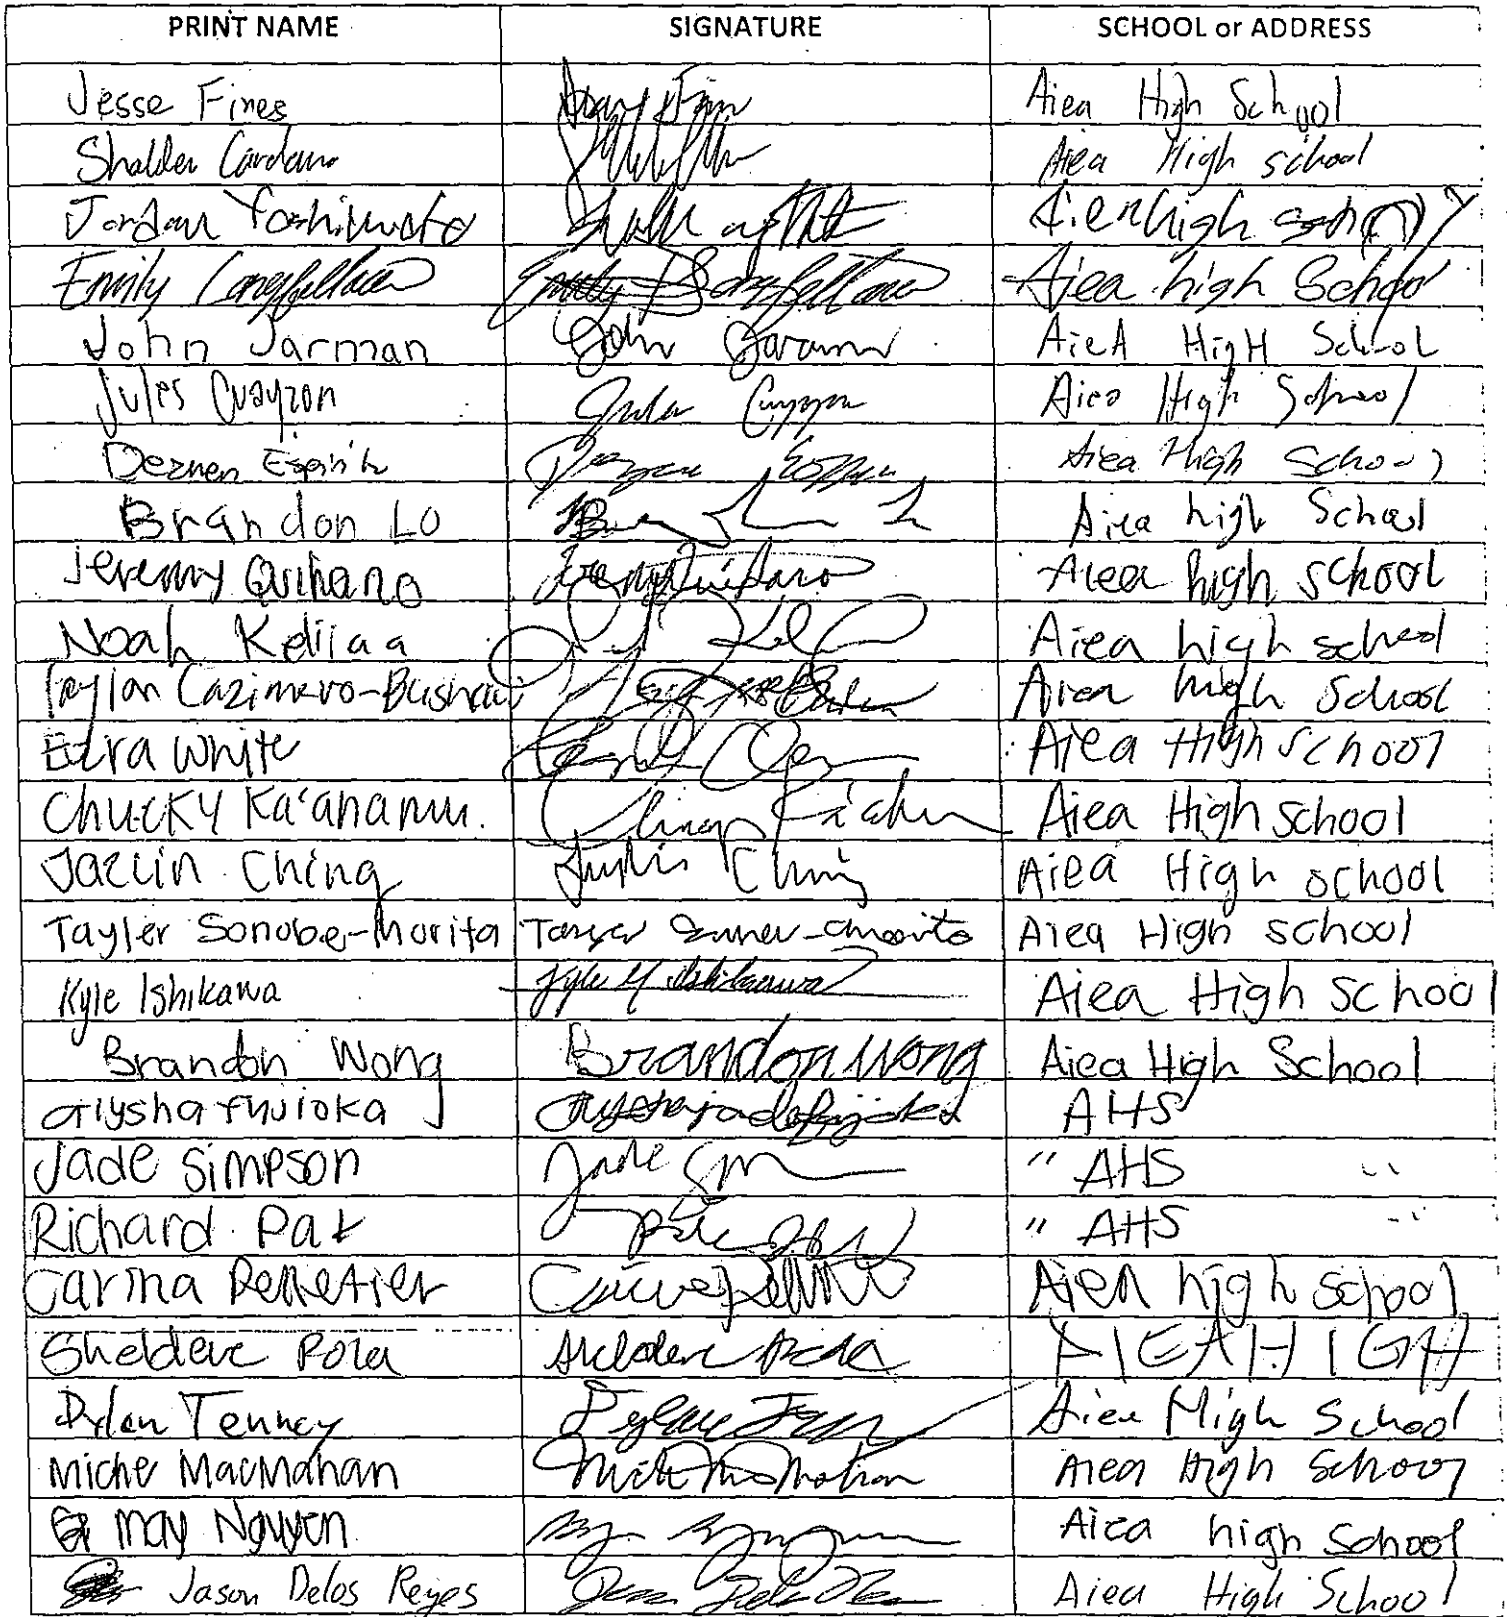 PRINT NAME SIGNATURE SCHOOL or ADDRESS
Jesse Fines Aiea High School
Shalder Aiea High school
Jordan Yoshimoto high
Emily Longfellow Emily Longfellow Aiea high School
John Jarman John Jarman AieA HigH School
Jules Cuayzon Jules Aiea High School
Aiea High School
Brandon Lo Aiea high School
Jeremy Quihano Jeremy Quihano Aiea high school
Noah Keliiaa Aiea high school
Taylon Cazimero-Bushaw Aiea high School
Ezra White Aiea High School
Chucky Ka'ananu. Aiea High School
Jazlin Ching Ching Aiea High School
Tayler Sonobe-Morita Aiea High School
Kyle Ishikawa Kyle M Ishikawa Aiea High School
Brandon Wong Brandon Wong Aiea High School
Alysha Fujioka AHS
Jade Simpson Jade " AHS "
Richard Pak " AHS "
Carina Pelletier Aiea high school
Sheldene Sheldene AIEA HIGH
Dylan Tenney Dylan Aiea High School
Miche MacMahan Aiea High School
May Nguyen Aiea high School
Jason Delos Reyes Aiea High School